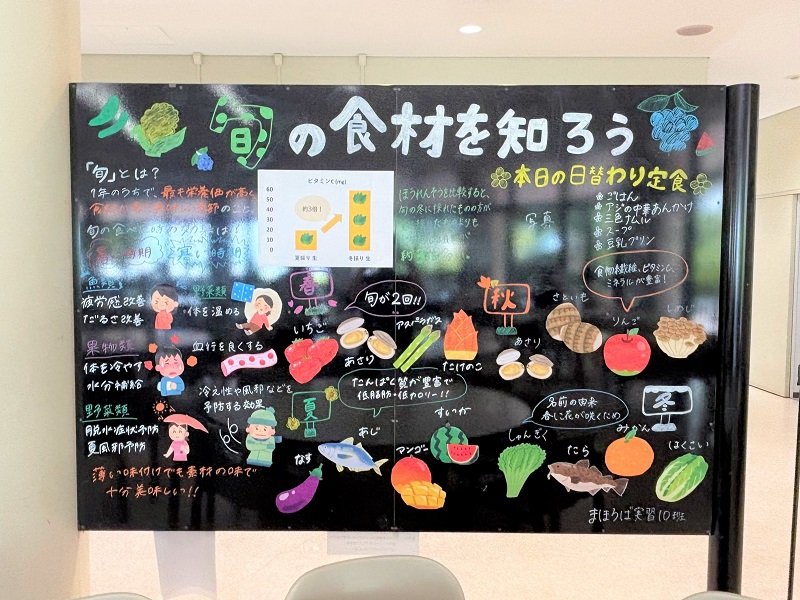 旬の食材を知ろう
「旬」とは?
1年のうちで、最も栄養価が高く
のこと
旬の食べ物の
暑い時期
寒い時期
ビタミンC(mg)
60
50
40
30
20
10
0
約3倍!
夏採り 生
冬採り 生
ほうれんそうを比較すると、
旬の冬に採れたものの方が
写真
本日の日替わり定食
ごはん
アジの中華あんかけ
三色ナムル
スープ
豆乳プリン
食物繊維、ビタミンC、
ミネラルが豊富!
魚類
疲労感改善
だるさ改善
果物類
体を冷やす
水分補給
野菜類
脱水症状予防
夏風邪予防
野菜類
体を温める
血行を良くする
冷え性や風邪などを
予防する効果
薄い味付けでも素材の味で
十分美味しい!!
春
旬が2回!!
いちご
あさり
アスパラガス
たけのこ
秋
あさり
さといも
りんご
しめじ
夏
たんぱく質が豊富で
低脂肪・低カロリー!!
なす
あじ
マンゴー
すいか
冬
名前の由来
春に花が咲くため
しゅんぎく
たら
みかん
はくさい
まほろば実習10班